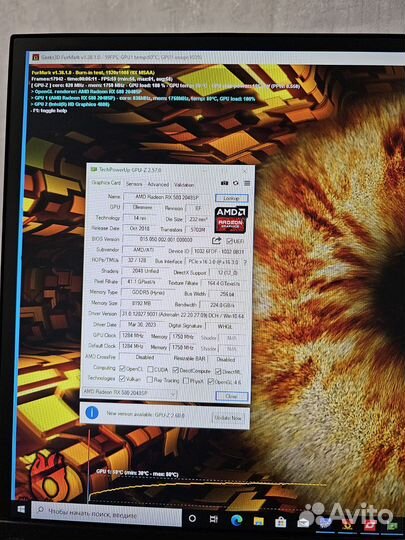 Geeks3D FurMark v1.38.1.0 - 59FPS, GPU1 temp:80°C, GPU1 usage:100%
FurMark v1.38.1.0 - Burn-in test, 1920x1080 (8X MSAA)
Frames:17042 - time:00:05:11 - FPS:59
> OpenGL renderer: AMD Radeon RX 580 2048SP
> GPU 1 (AMD Radeon RX 580 2048SP) - core: 1750MHz, GPU temp: 80°C, GPU load: 100%
> GPU 2 (Intel(R) HD Graphics 4600)
- F1: toggle help
TechPowerUp GPU-Z 2.57.0
Graphics Card Sensors Advanced Validation
Name AMD Radeon RX 580 2048SP Lookup
GPU Ellesmere Revision EF
Technology 14 nm Die Size 232 mm²
Release Date Oct 2018 Transistors 5700M
AMD
RADEON
GRAPHICS
BIOS Version 015.050.002.001.000000 UEFI
Subvendor AMD/ATI Device ID 1002 6FDF - 1002 0B31
ROPs/TMUs 32 / 128 Bus Interface PCIe x16 3.0 @ x16 3.0 ?
Shaders 2048 Unified DirectX Support 12 (12_0)
Pixel Fillrate 41.1 GPixel/s Texture Fillrate 164.4 GTexel/s
Memory Type GDDR5 (Hynix) Bus Width 256 bit
Memory Size 8192 MB Bandwidth 224.0 GB/s
Driver Version 31.0.12027.9001 (Adrenalin 22.20.27.09) DCH / Win10 64
Driver Date Mar 30, 2023 Digital Signature WHQL
GPU Clock 1284 MHz Memory 1750 MHz Shader N/A
Default Clock 1284 MHz Memory 1750 MHz Shader N/A
AMD CrossFire Disabled Resizable BAR Disabled
Computing OpenCL CUDA DirectCompute DirectML
Technologies Vulkan Ray Tracing PhysX OpenGL 4.6
AMD Radeon RX 580 2048SP Close
New version available: GPU-Z 2.60.0 Update Now
GPU 1: 80°C (min: 30°C - max: 80°C)
Чтобы начать поиск, введите
Avito